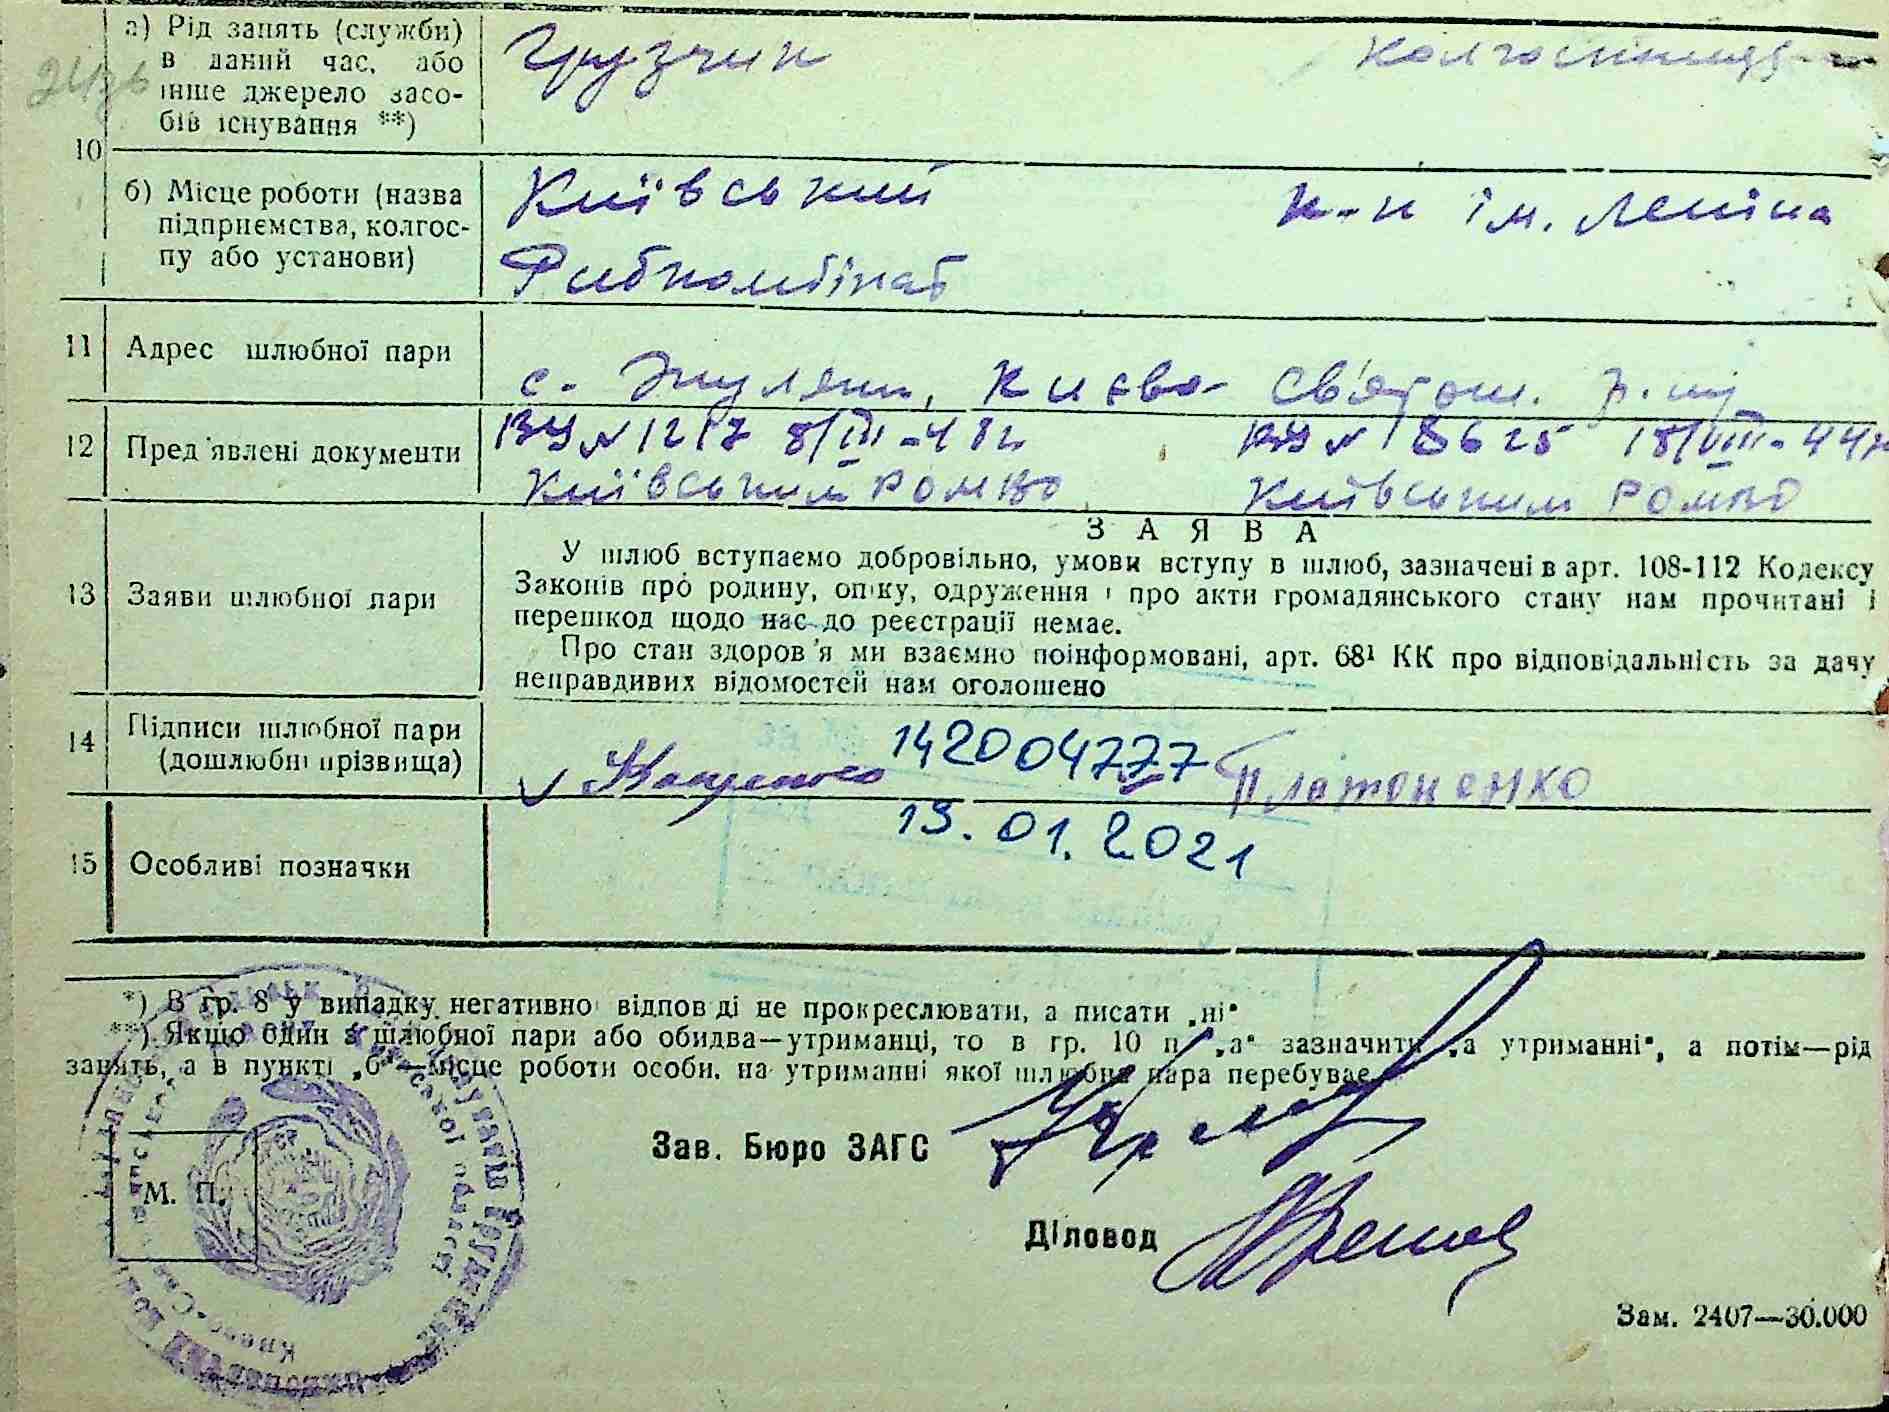 а) Рід занять (служби)
в даний час, або
інше джерело засо-
бів існування **)
Грузчик
10
б) Місце роботи (назва
підприємства, колгос-
пу або установи)
Київський
к-п ім. Леніна
Рибкомбінат
11 Адрес шлюбної пари
с. Жуляни, Києво-Святош. р-ну
12 Пред'явлені документи
ВУ № 1217 8/III-48г
ВУ № 18625 18/VIII-44г
Київським РОМВД
Київським РОМВД
ЗАЯВА
13 Заяви шлюбної пари
У шлюб вступаємо добровільно, умови вступу в шлюб, зазначені в арт. 108-112 Кодексу
Законів про родину, опіку, одруження і про акти громадянського стану нам прочитані і
перешкод щодо нас до реєстрації немає.
Про стан здоров'я ми взаємно поінформовані, арт. 68¹ КК про відповідальність за дачу
неправдивих відомостей нам оголошено
14 Підписи шлюбної пари
(дошлюбні прізвища)
142004777
Платоненко
13.01.2021
15 Особливі позначки
*) В гр. 8 у випадку негативної відповіді не прокреслювати, а писати „ні"
**) Якщо один з шлюбної пари або обидва—утриманці, то в гр. 10 п. „а" зазначити „а утриманні", а потім—рід
занять, а в пункті „б"—місце роботи особи, на утриманні якої шлюбна пара перебуває.
Зав. Бюро ЗАГС
М. П.
Діловод
Зам. 2407—30.000